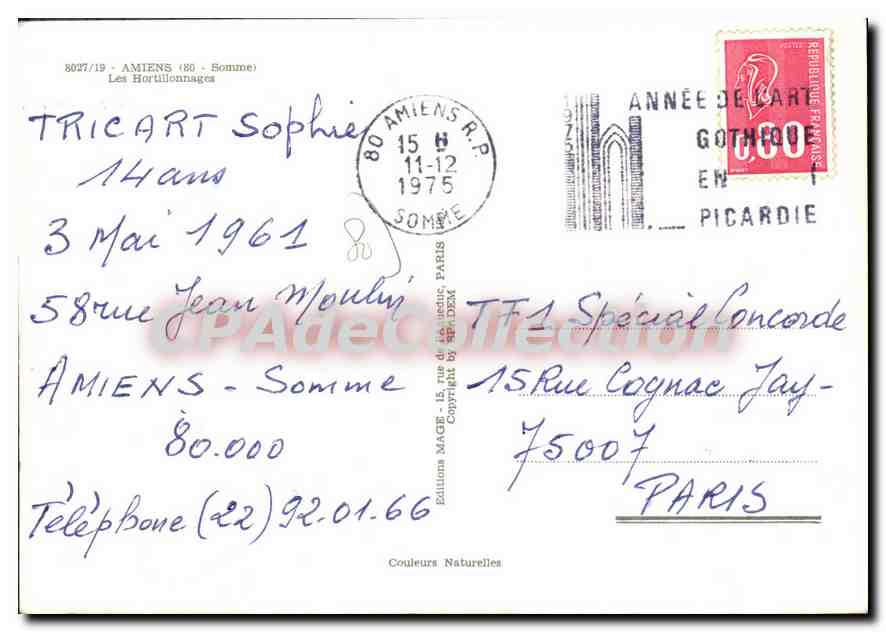 8027/19 - AMIENS (80 - Somme)
Les Hortillonnages
TRICART Sophie
14 ans
3 Mai 1961
58 rue Jean Moulin
AMIENS - Somme
80.000
Téléphone (22) 92.01.66
80
80 AMIENS R.P.
15 H
11-12
1975
SOMME
1975
ANNÉE DE L'ART
GOTHIQUE
EN
PICARDIE
POSTES
REPUBLIQUE FRANÇAISE
0,60
Editions MAGE - 15, rue de l'Aqueduc, PARIS
Copyright by SPADEM
TF1 Spécial Concorde
15 Rue Cognac Jay -
75007
PARIS
CPAdeCollection
Couleurs Naturelles